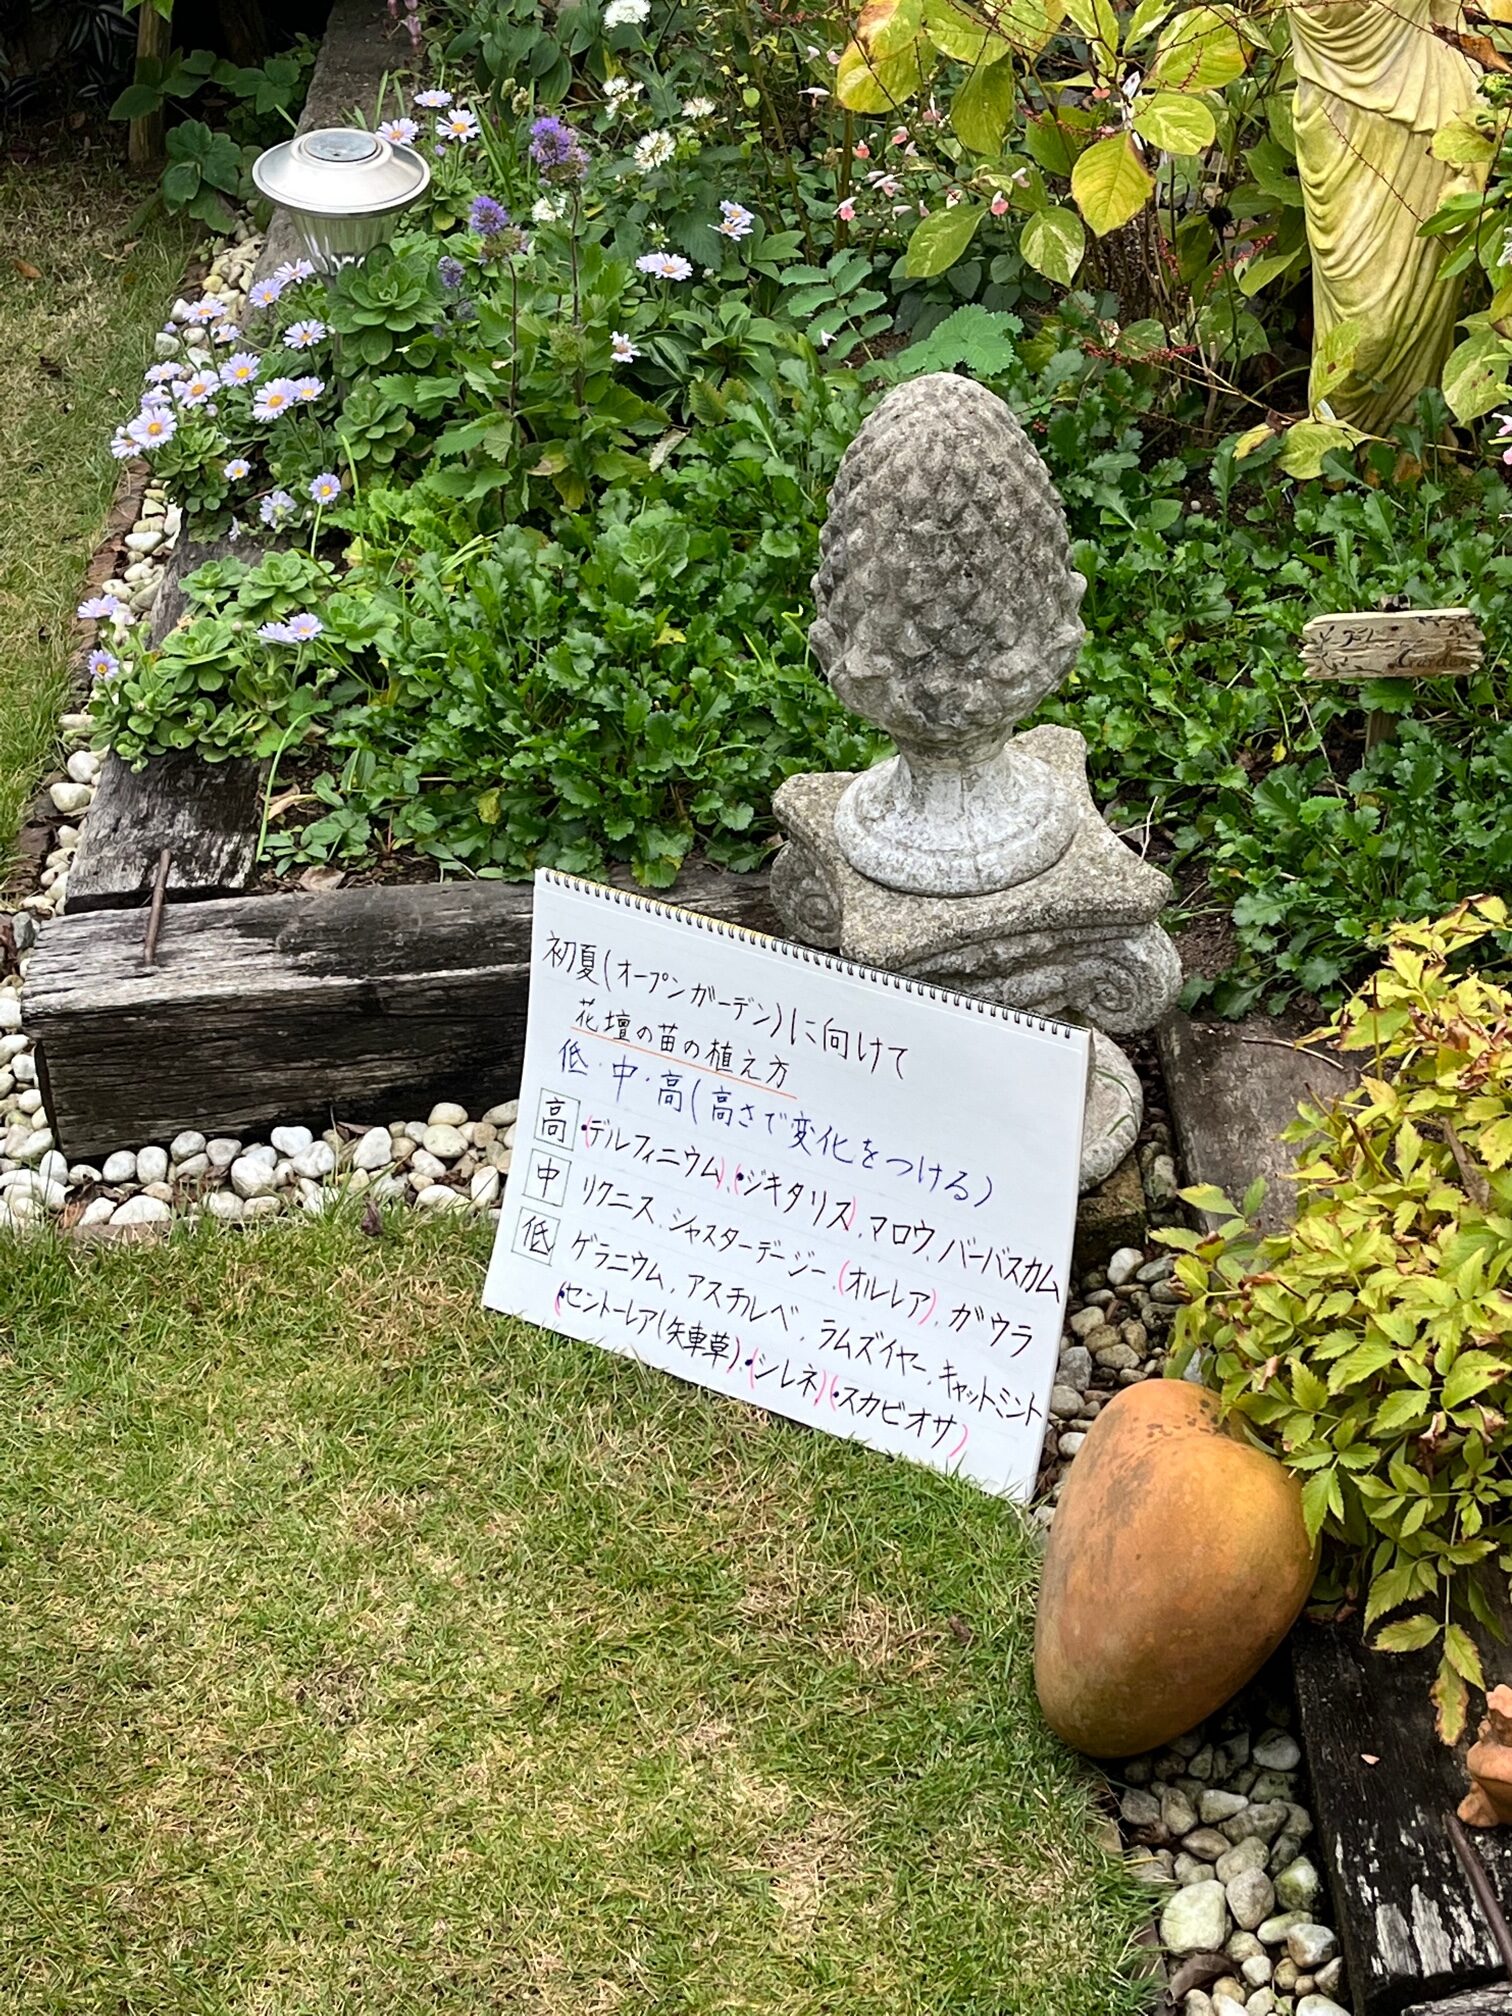 初夏(オープンガーデン)に向けて
花壇の苗の植え方
低・中・高(高さで変化をつける)
高 (・デルフィニウム)、(・ジキタリス)、マロウ、バーバスカム
中 リクニス、シャスターデージー、(オルレア)、ガウラ
低 ゲラニウム、アスチルベ、ラムズイヤー、キャットミント
(・セントーレア(矢車草)、(・シレネ)(・スカビオサ)
Garden